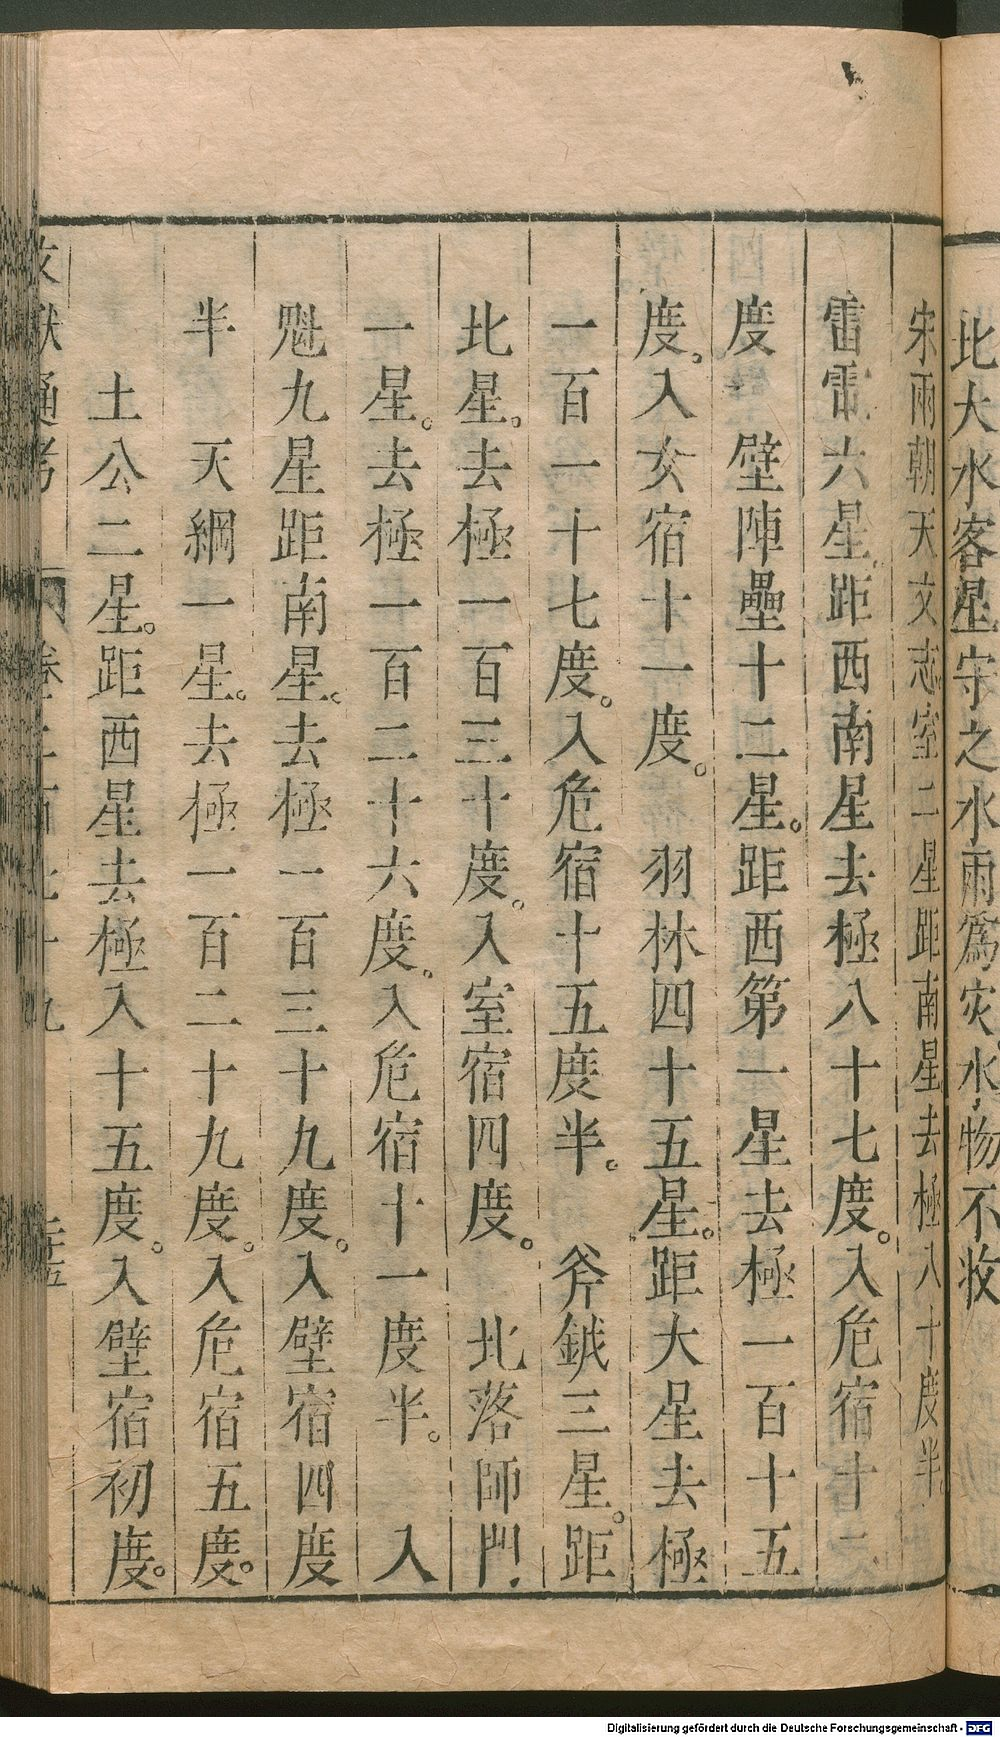 北大水客星守之水雨爲災水物不收
宋雨朝天文志室二星距南星去極八十度半
雷電六星距西南星去極八十七度。入危宿十二
度　壁陣壘十二星。距西第一星去極一百十五
度。入女宿十一度。　羽林四十五星。距大星去極
一百一十七度。入危宿十五度半。　斧鉞三星。距
北星。去極一百三十度。入室宿四度。　北落師門
一星。去極一百二十六度。入危宿十一度半。　八
魁九星距南星。去極一百三十九度。入壁宿四度
半　天綱一星。去極一百二十九度。入危宿五度。
土公二星。距西星去極入十五度。入壁宿初度。
文獻通考　卷二百七十九　三十五
Digitalisierung gefördert durch die Deutsche Forschungsgemeinschaft - DFG